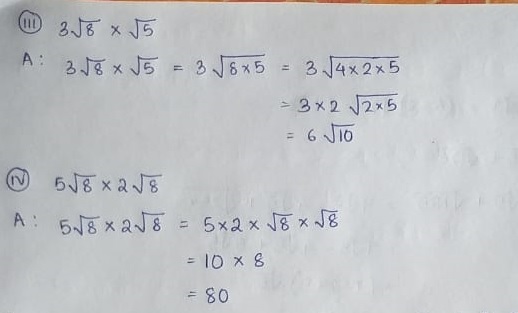 (iii) 3√8 × √5
A: 3√8 × √5 = 3√(8×5) = 3√(4×2×5)
= 3×2 √(2×5)
= 6√10
(iv) 5√8 × 2√8
A: 5√8 × 2√8 = 5×2×√8 × √8
= 10 × 8
= 80